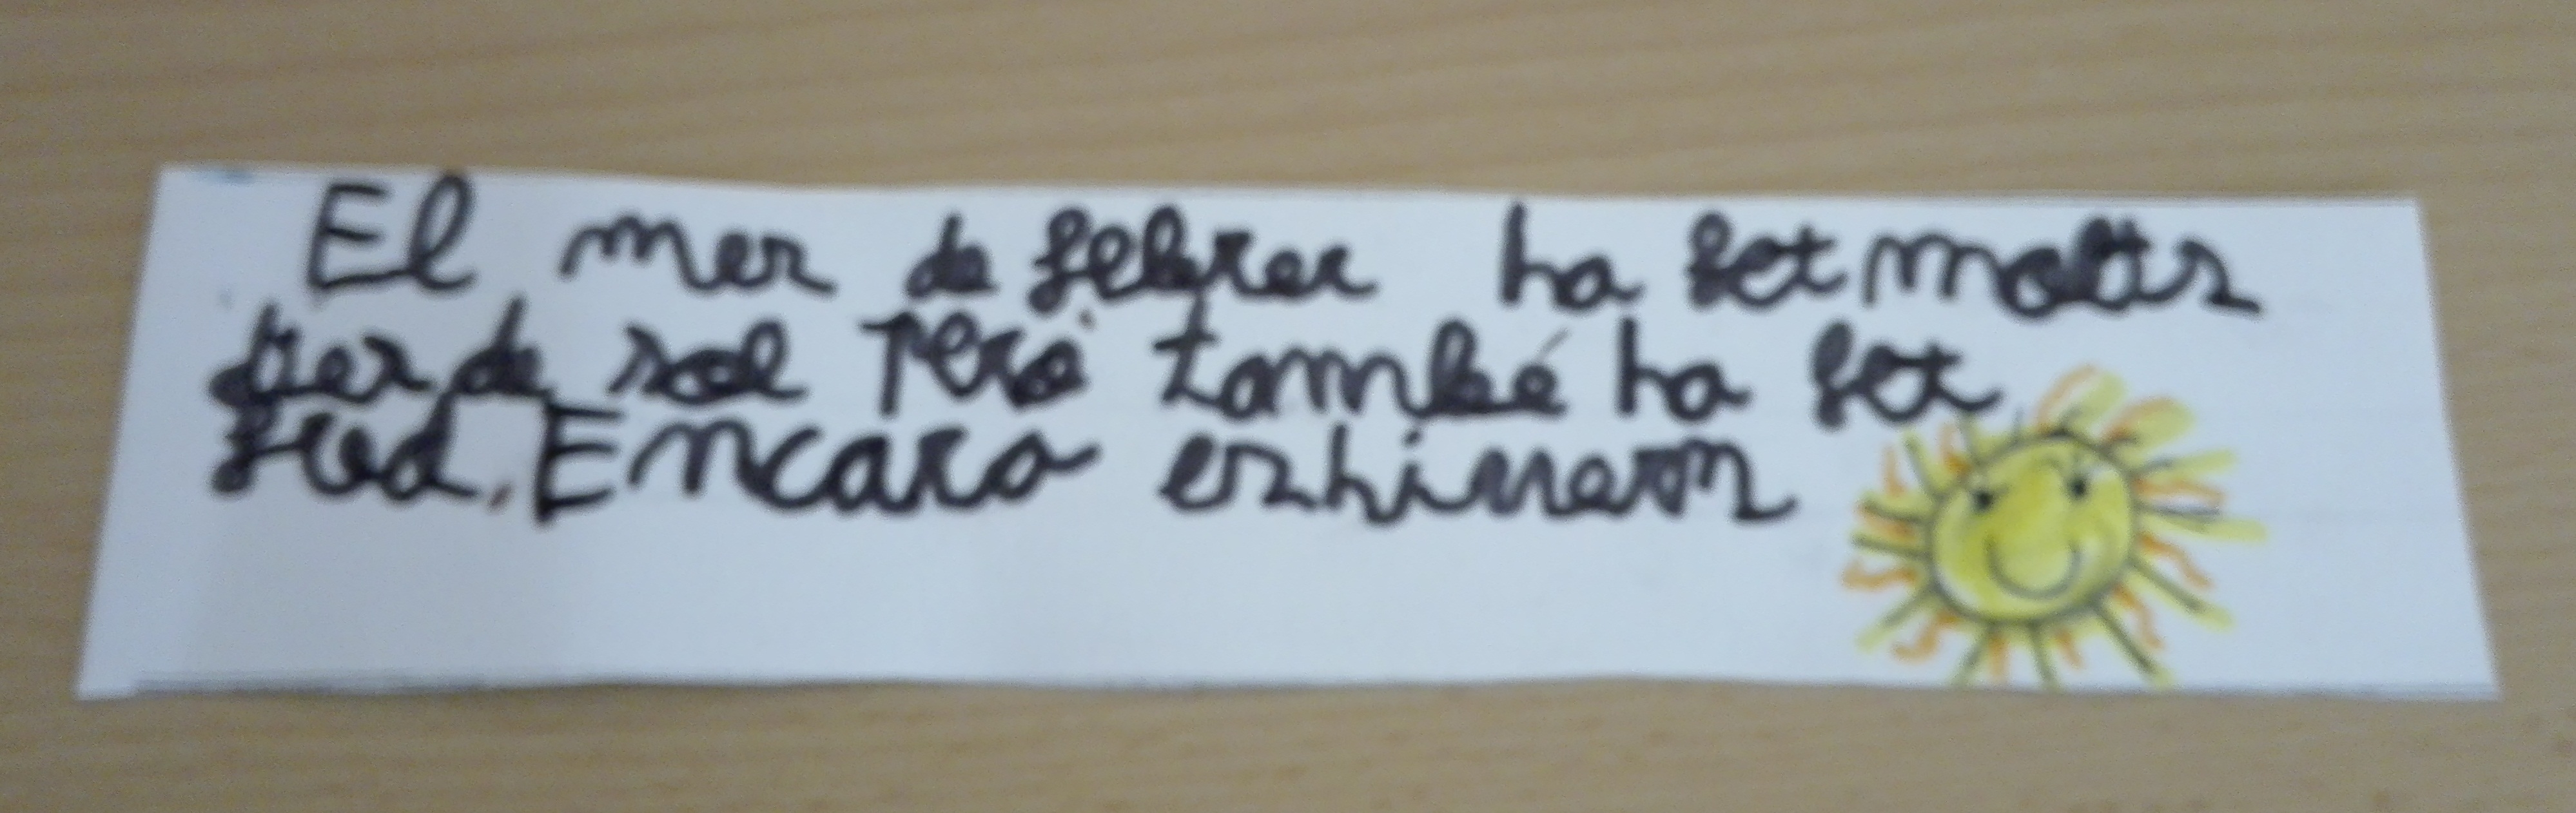 El mes de febrer ha fet molts
dies de sol Però també ha fet
fred. Encara es hivern